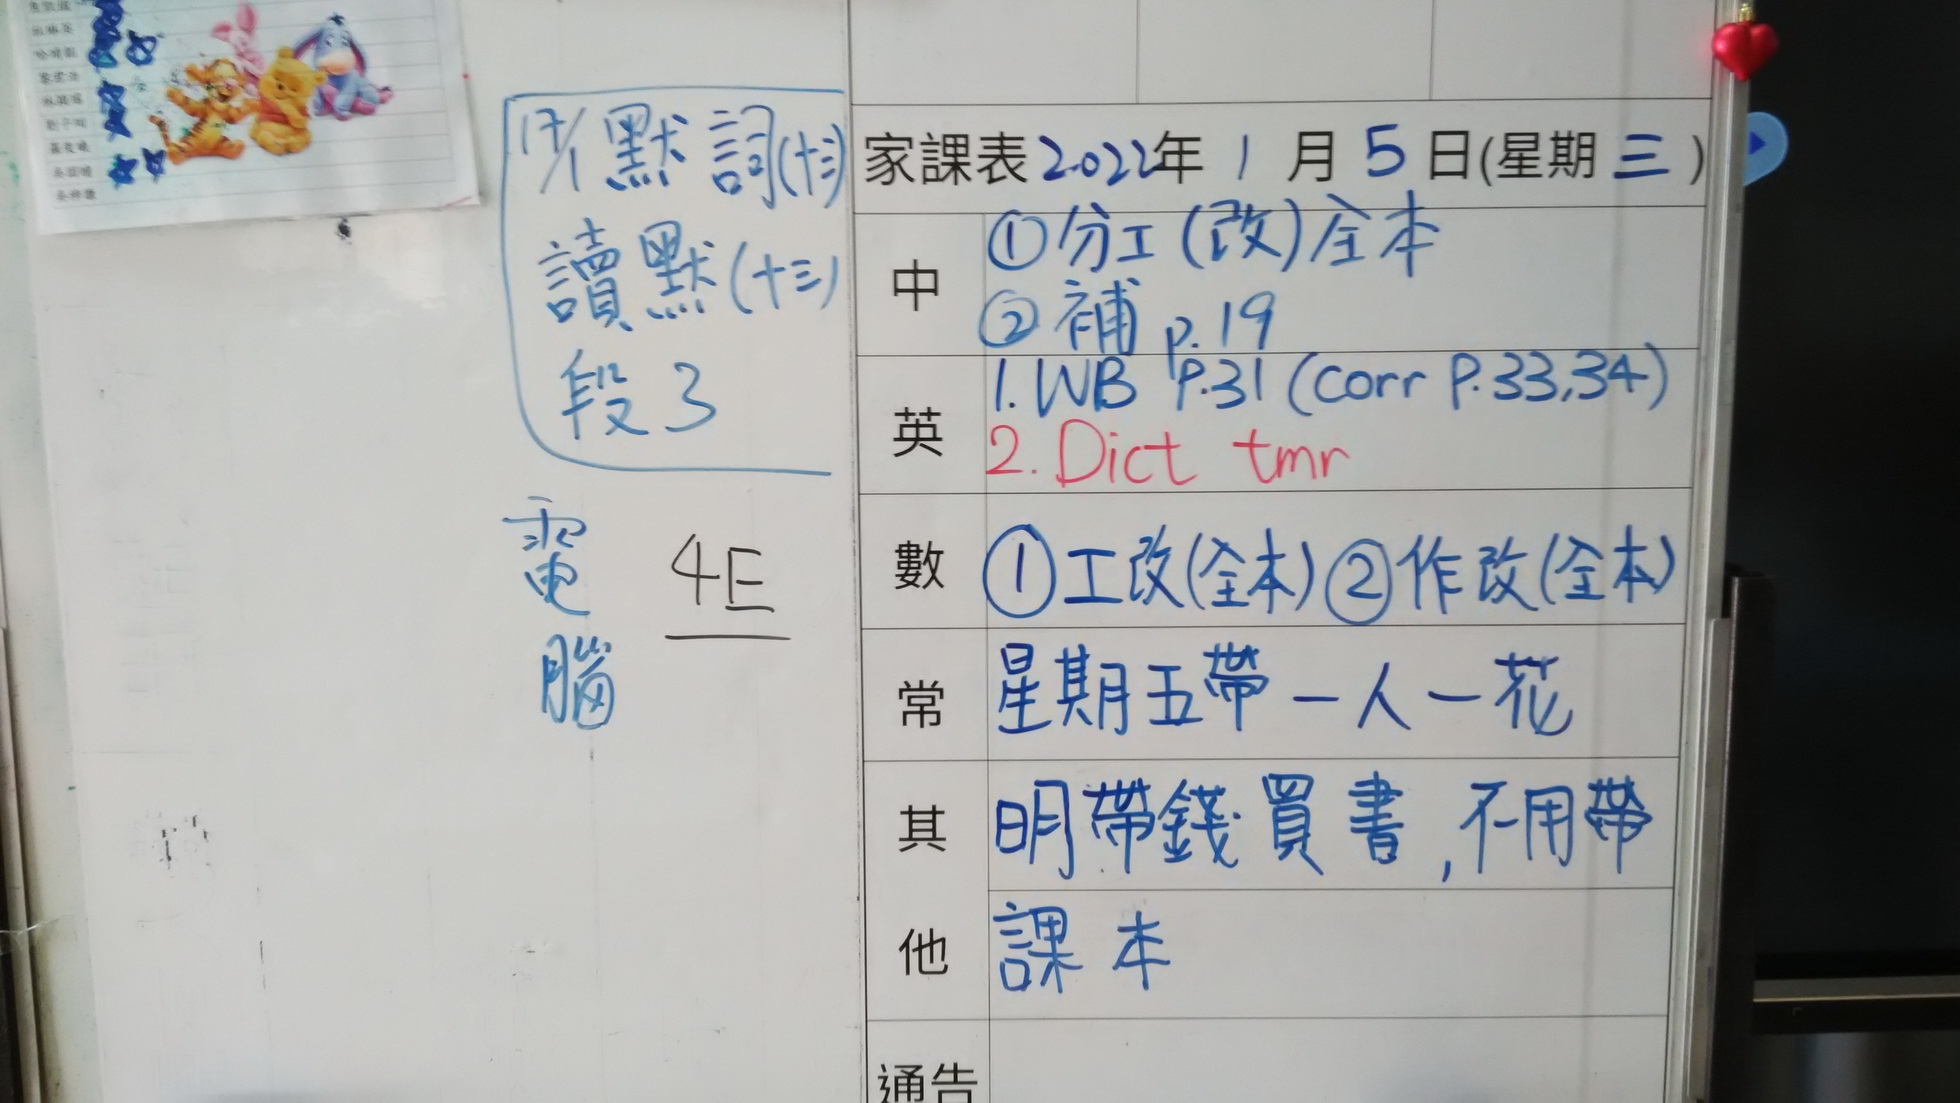 17/1 默詞(十三)
讀默(十三)
段3
電腦
4E
家課表2022年1月5日(星期三)
中
①分工(改)全本
②補 p.19
英
1. WB P.31 (corr P.33,34)
2. Dict tmr
數
①工改(全本)②作改(全本)
常
星期五帶一人一花
其他
明帶錢買書,不用帶
課本
通告